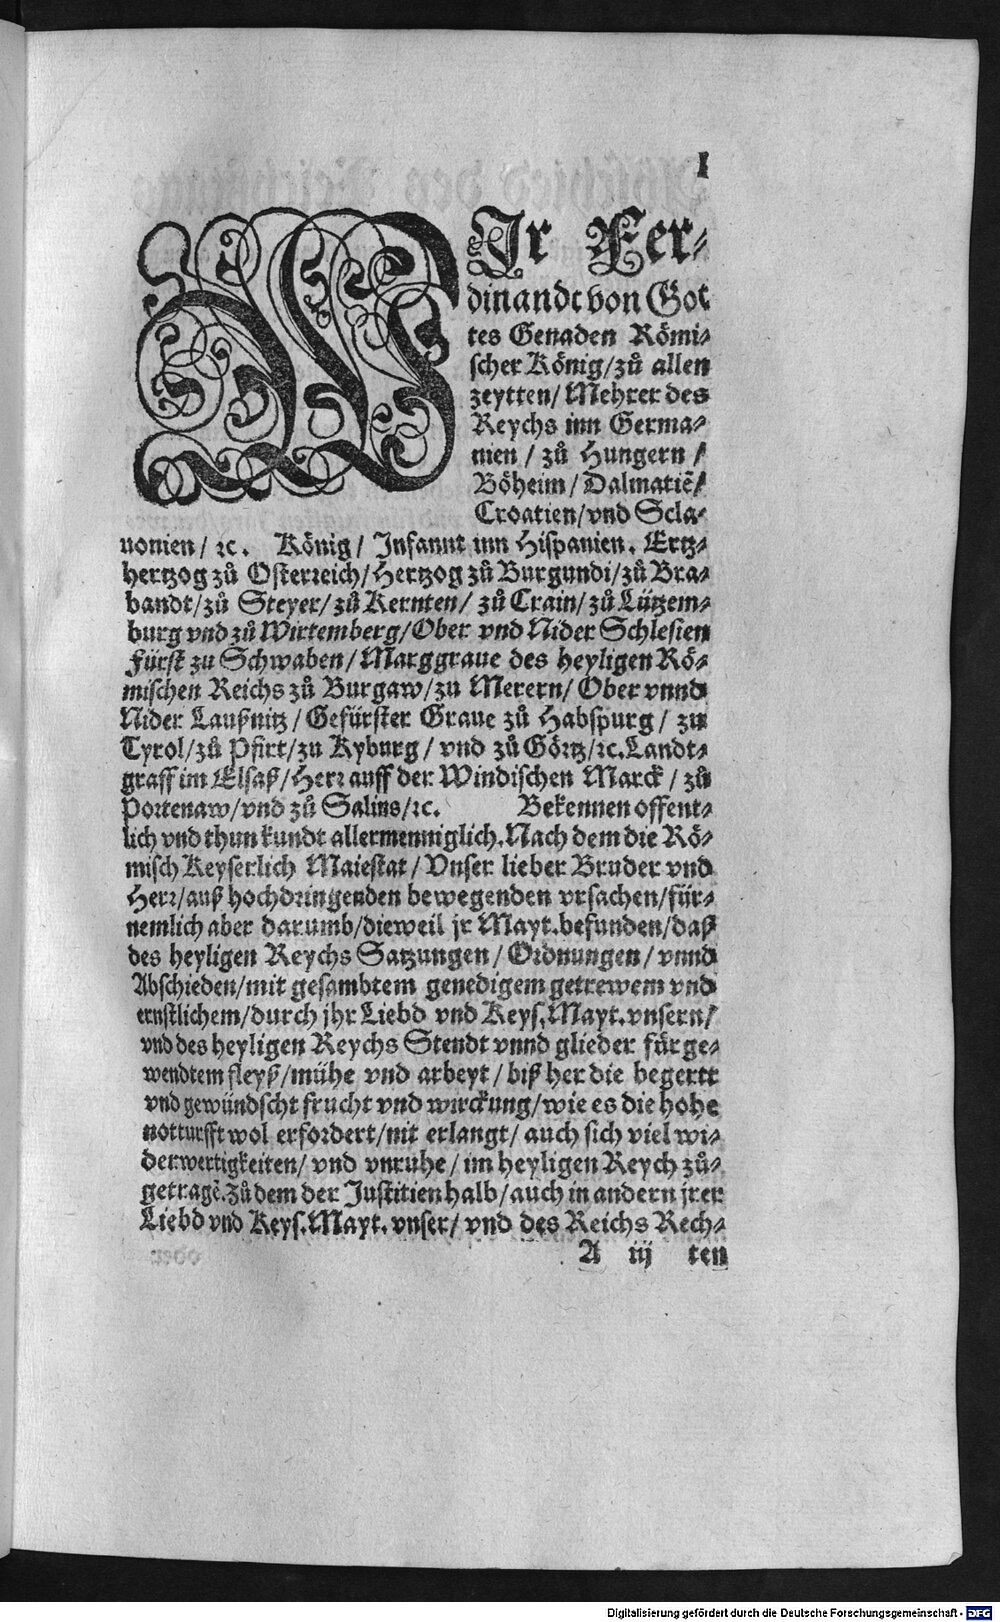 I
WIr Fer-
dinandt von Got
tes Genaden Römi-
scher König/zů allen
zeytten/ Mehrer des
Reychs inn Germa-
nien / zů Hungern /
Böheim/ Dalmatiē/
Croatien/vnd Scla-
uonien/ ꝛc. König/ Infannt inn Hispanien. Ertz-
hertzog zů Osterreich/Hertzog zů Burgundi/zů Bra-
bandt/zů Steyer/zů Kernten/ zů Crain/zů Lützem-
burg vnd zů Wirtemberg/Ober vnd Nider Schlesien
Fürst zu Schwaben/ Marggraue des heyligen Rö-
mischen Reichs zů Burgaw/zu Merern/ Ober vnnd
Nider Laußnitz/ Gefürster Graue zů Habspurg/ zu
Tyrol/zů Pfirt/zu Kyburg/ vnd zů Görtz/ꝛc. Landt-
graff im Elsaß/Herr auff der Windischen Marck/ zů
Portenaw/vnd zů Salins/ꝛc. Bekennen offent-
lich vnd thun kundt allermenniglich. Nach dem die Rö-
misch Keyserlich Maiestat/ Vnser lieber Bruder vnd
Herr/auß hochdringenden bewegenden vrsachen/für-
nemlich aber darumb/dieweil jr Mayt. befunden/daß
des heyligen Reychs Satzungen/ Ordnungen/ vnnd
Abschieden/mit gesambtem genedigem getrewem vnd
ernstlichem/durch jhr Liebd vnd Keys. Mayt. vnsern/
vnd des heyligen Reychs Stendt vnnd glieder fürge-
wendtem fleyß/mühe vnd arbeyt/ biß her die begertt
vnd gewündscht frucht vnd wirckung/wie es die hohe
notturfft wol erfordert/nit erlangt/ auch sich viel wi-
derwertigkeiten/ vnd vnruhe/ im heyligen Reych zů-
getragē. Zů dem der Justitien halb/auch in andern jrer
Liebd vnd Keys. Mayt. vnser/ vnd des Reichs Rech-
A iij ten
Digitalisierung gefördert durch die Deutsche Forschungsgemeinschaft - DFG